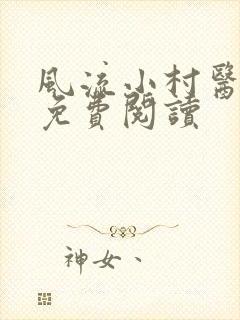 風流小村醫
免費閱讀
神女、